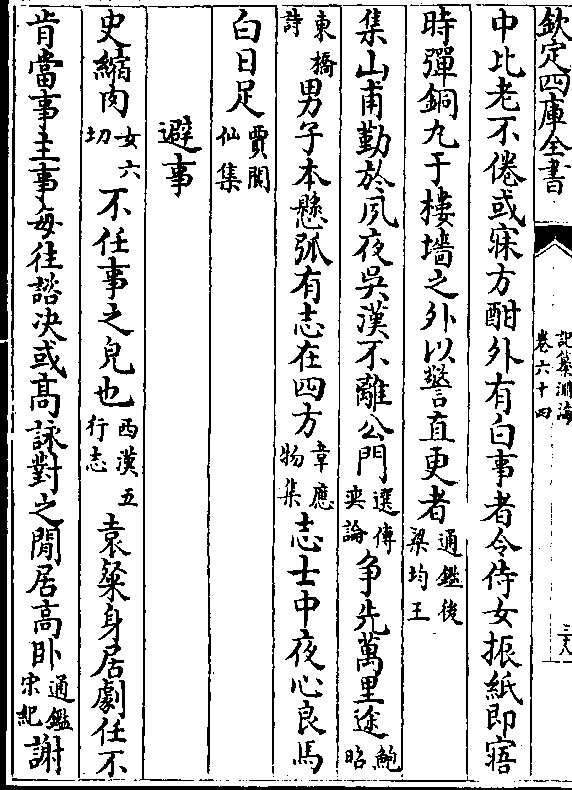 欽定四庫全書
記纂淵海
卷六十四
三八
中比老不倦或寐方酣外有白事者令侍女振紙即寤
時彈銅丸于樓墻之外以警直更者通鑑後梁均王
集山甫勤於夙夜吳漢不離公門選傅奕論争先萬里途鮑昭
東橋詩男子本懸弧有志在四方韋應物集志士中夜心良馬
白日足賈閬仙集
避事
史縮肉女六切不任事之皃也西漢五行志袁粲身居劇任不
肯當事主事每往諮决或高詠對之閒居高卧通鑑宋紀謝